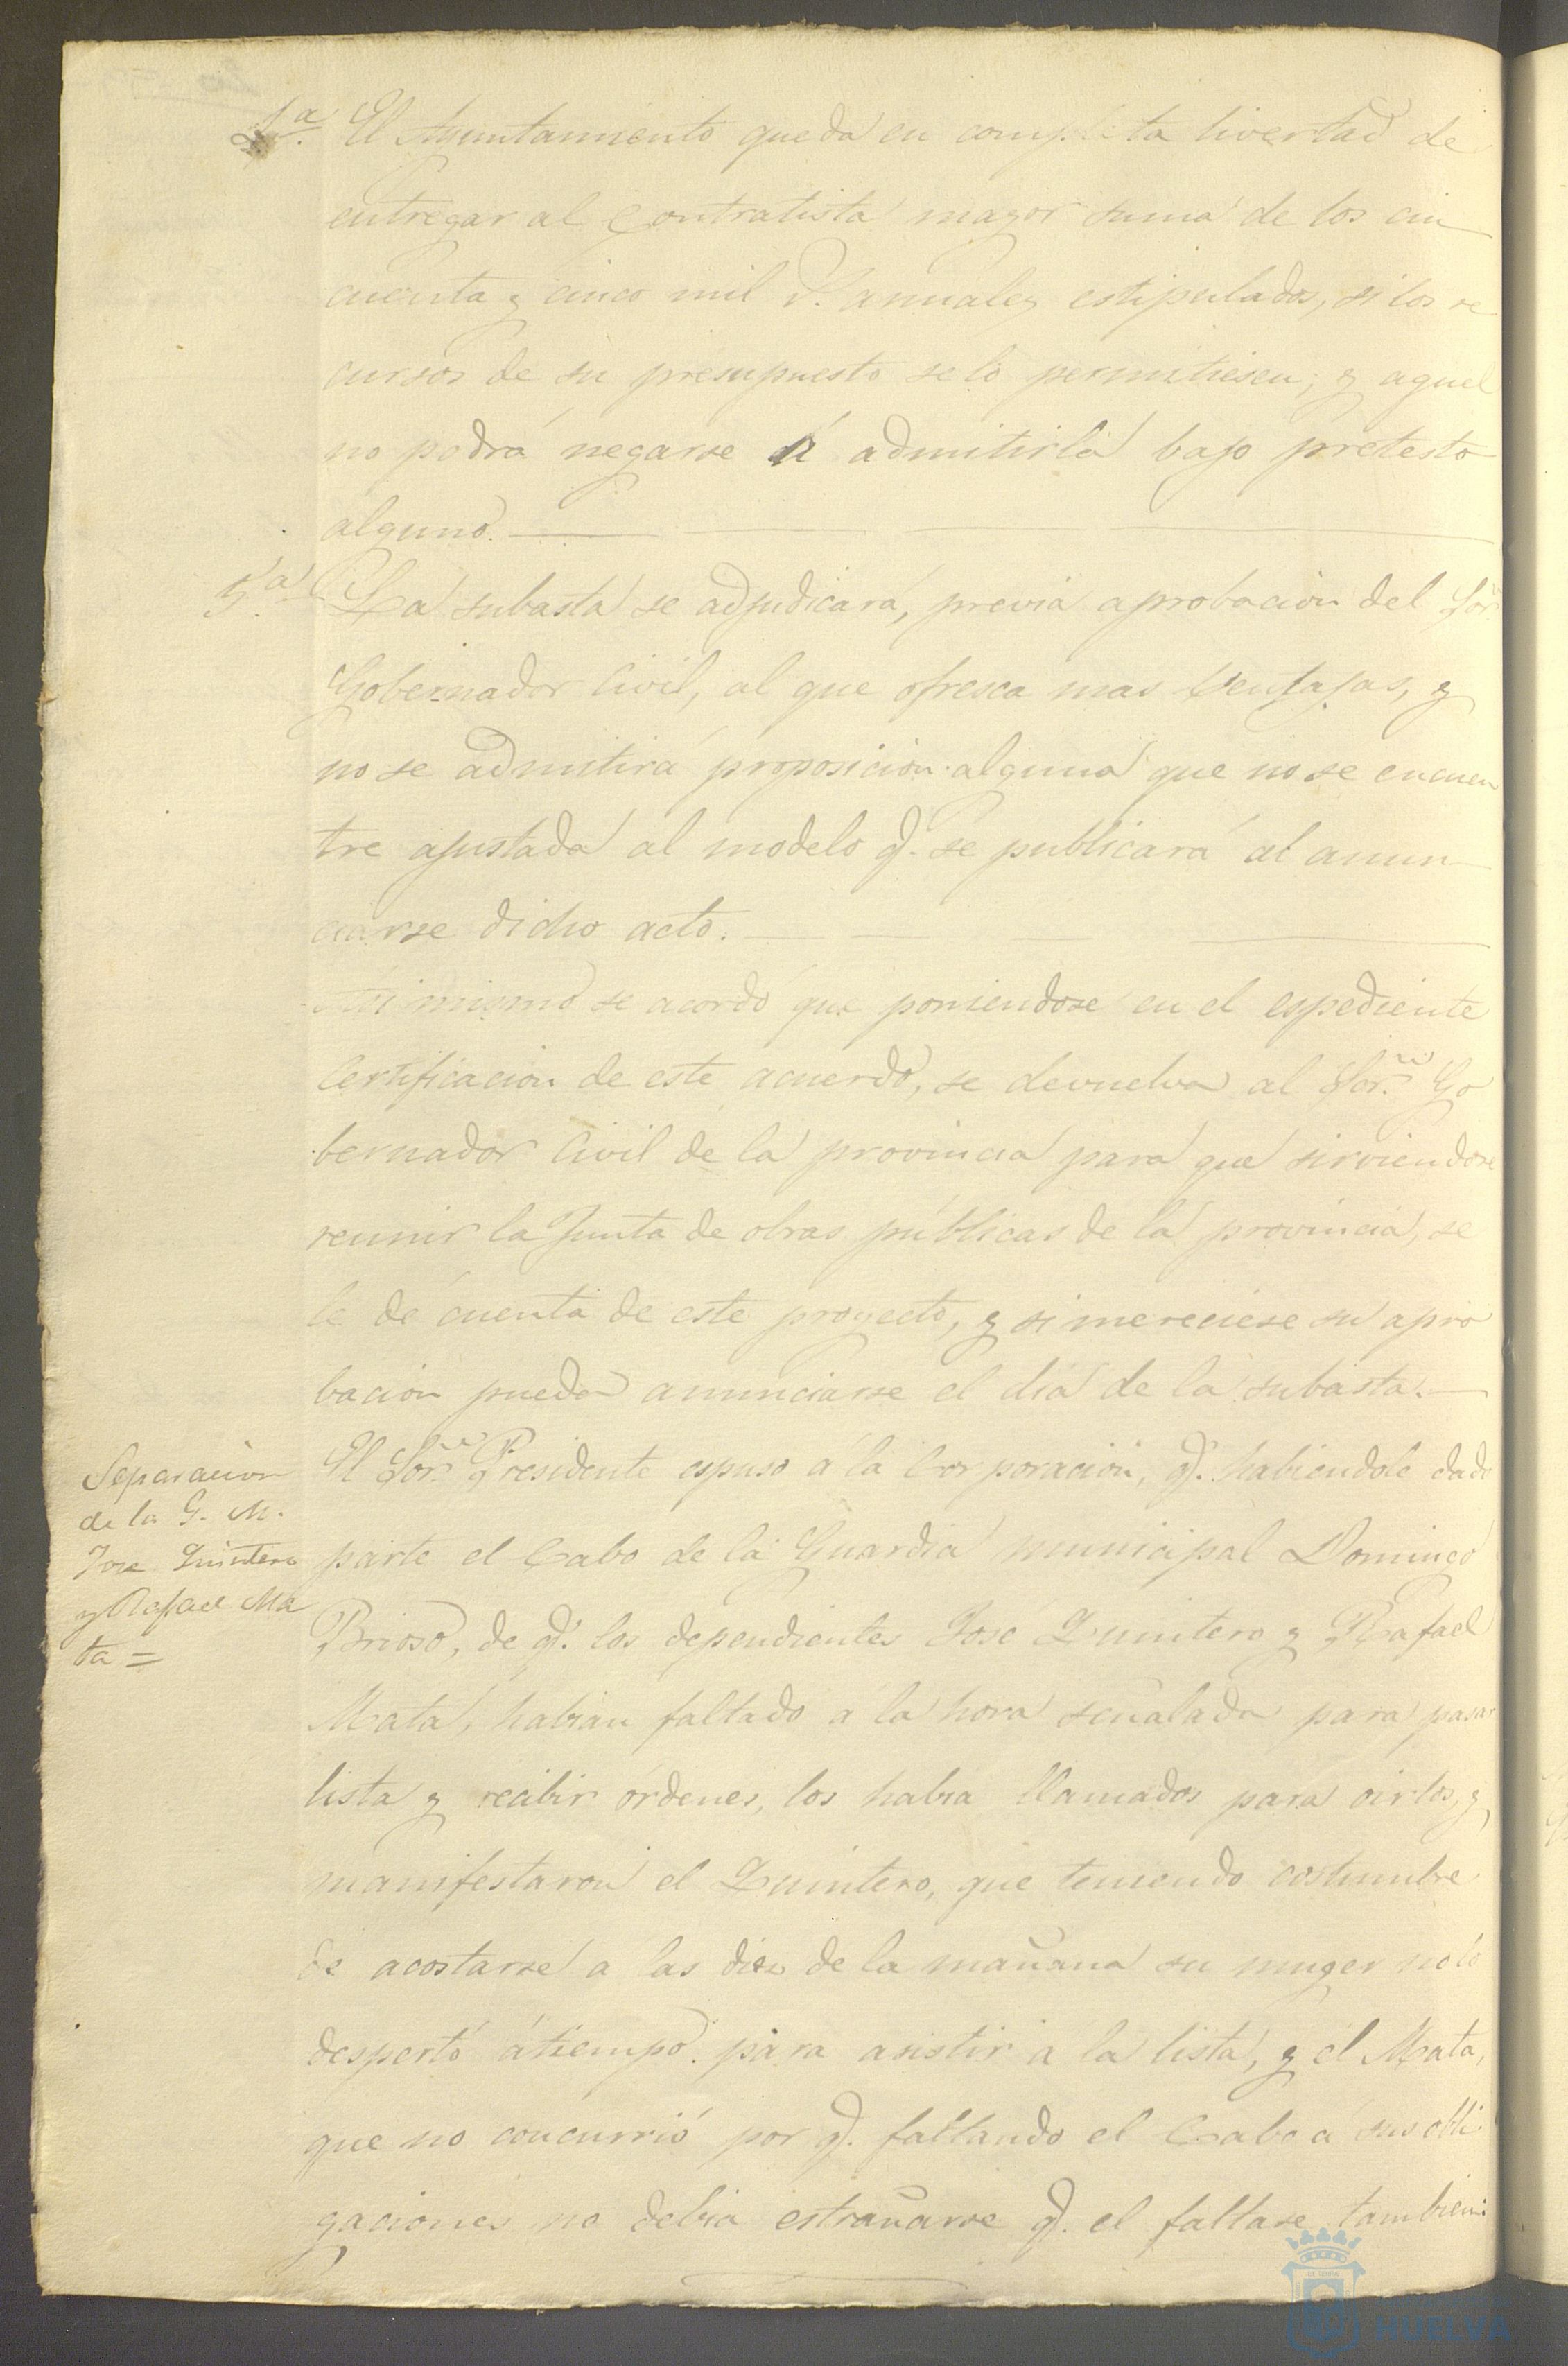 4.ª El Ayuntamiento queda en completa livertad de
entregar al Contratista mayor suma de los cin
cuenta y cinco mil r.ˢ anuales estipulados, si los re
cursos de su presupuesto se lo permitiesen; y aquel
no podrá negarse á admitirla bajo pretesto
alguno.
5.ª La subasta se adjudicará, previa aprobacion del Sor.
Gobernador Civil, al que ofresca mas ventajas, y
no se admitirá proposicion alguna que no se encuen
tre ajustada al modelo q.ᵉ se publicará al anun
ciarse dicho acto.
Asi mismo se acordó que poniendose en el espediente
certificacion de este acuerdo, se devuelva al Sor. Go
bernador Civil de la provincia para que sirviendose
reunir la Junta de obras públicas de la provincia, se
le dé cuenta de este proyecto, y si mereciese su apro
bacion pueda anunciarse el dia de la subasta.
Separacion
de la G. M.
Jose Quintero
y Rafael Ma
ta =
El Sor. Presidente espuso a la Corporacion, q.ᵉ habiendole dado
parte el Cabo de la Guardia municipal Domingo
Brioso, de q.ᵉ los dependientes José Quintero y Rafael
Mata, habian faltado a la hora señalada para pasar
lista y recibir órdenes, los habia llamados para oirlos, y
manifestaron el Quintero, que teniendo costumbre
de acostarse a las diez de la mañana su muger no lo
despertó á tiempo para asistir a la lista, y el Mata,
que no concurrió por q.ᵉ faltando el Cabo a sus obli
gaciones no debia estrañarse q.ᵉ el faltase tambien:
HUELVA